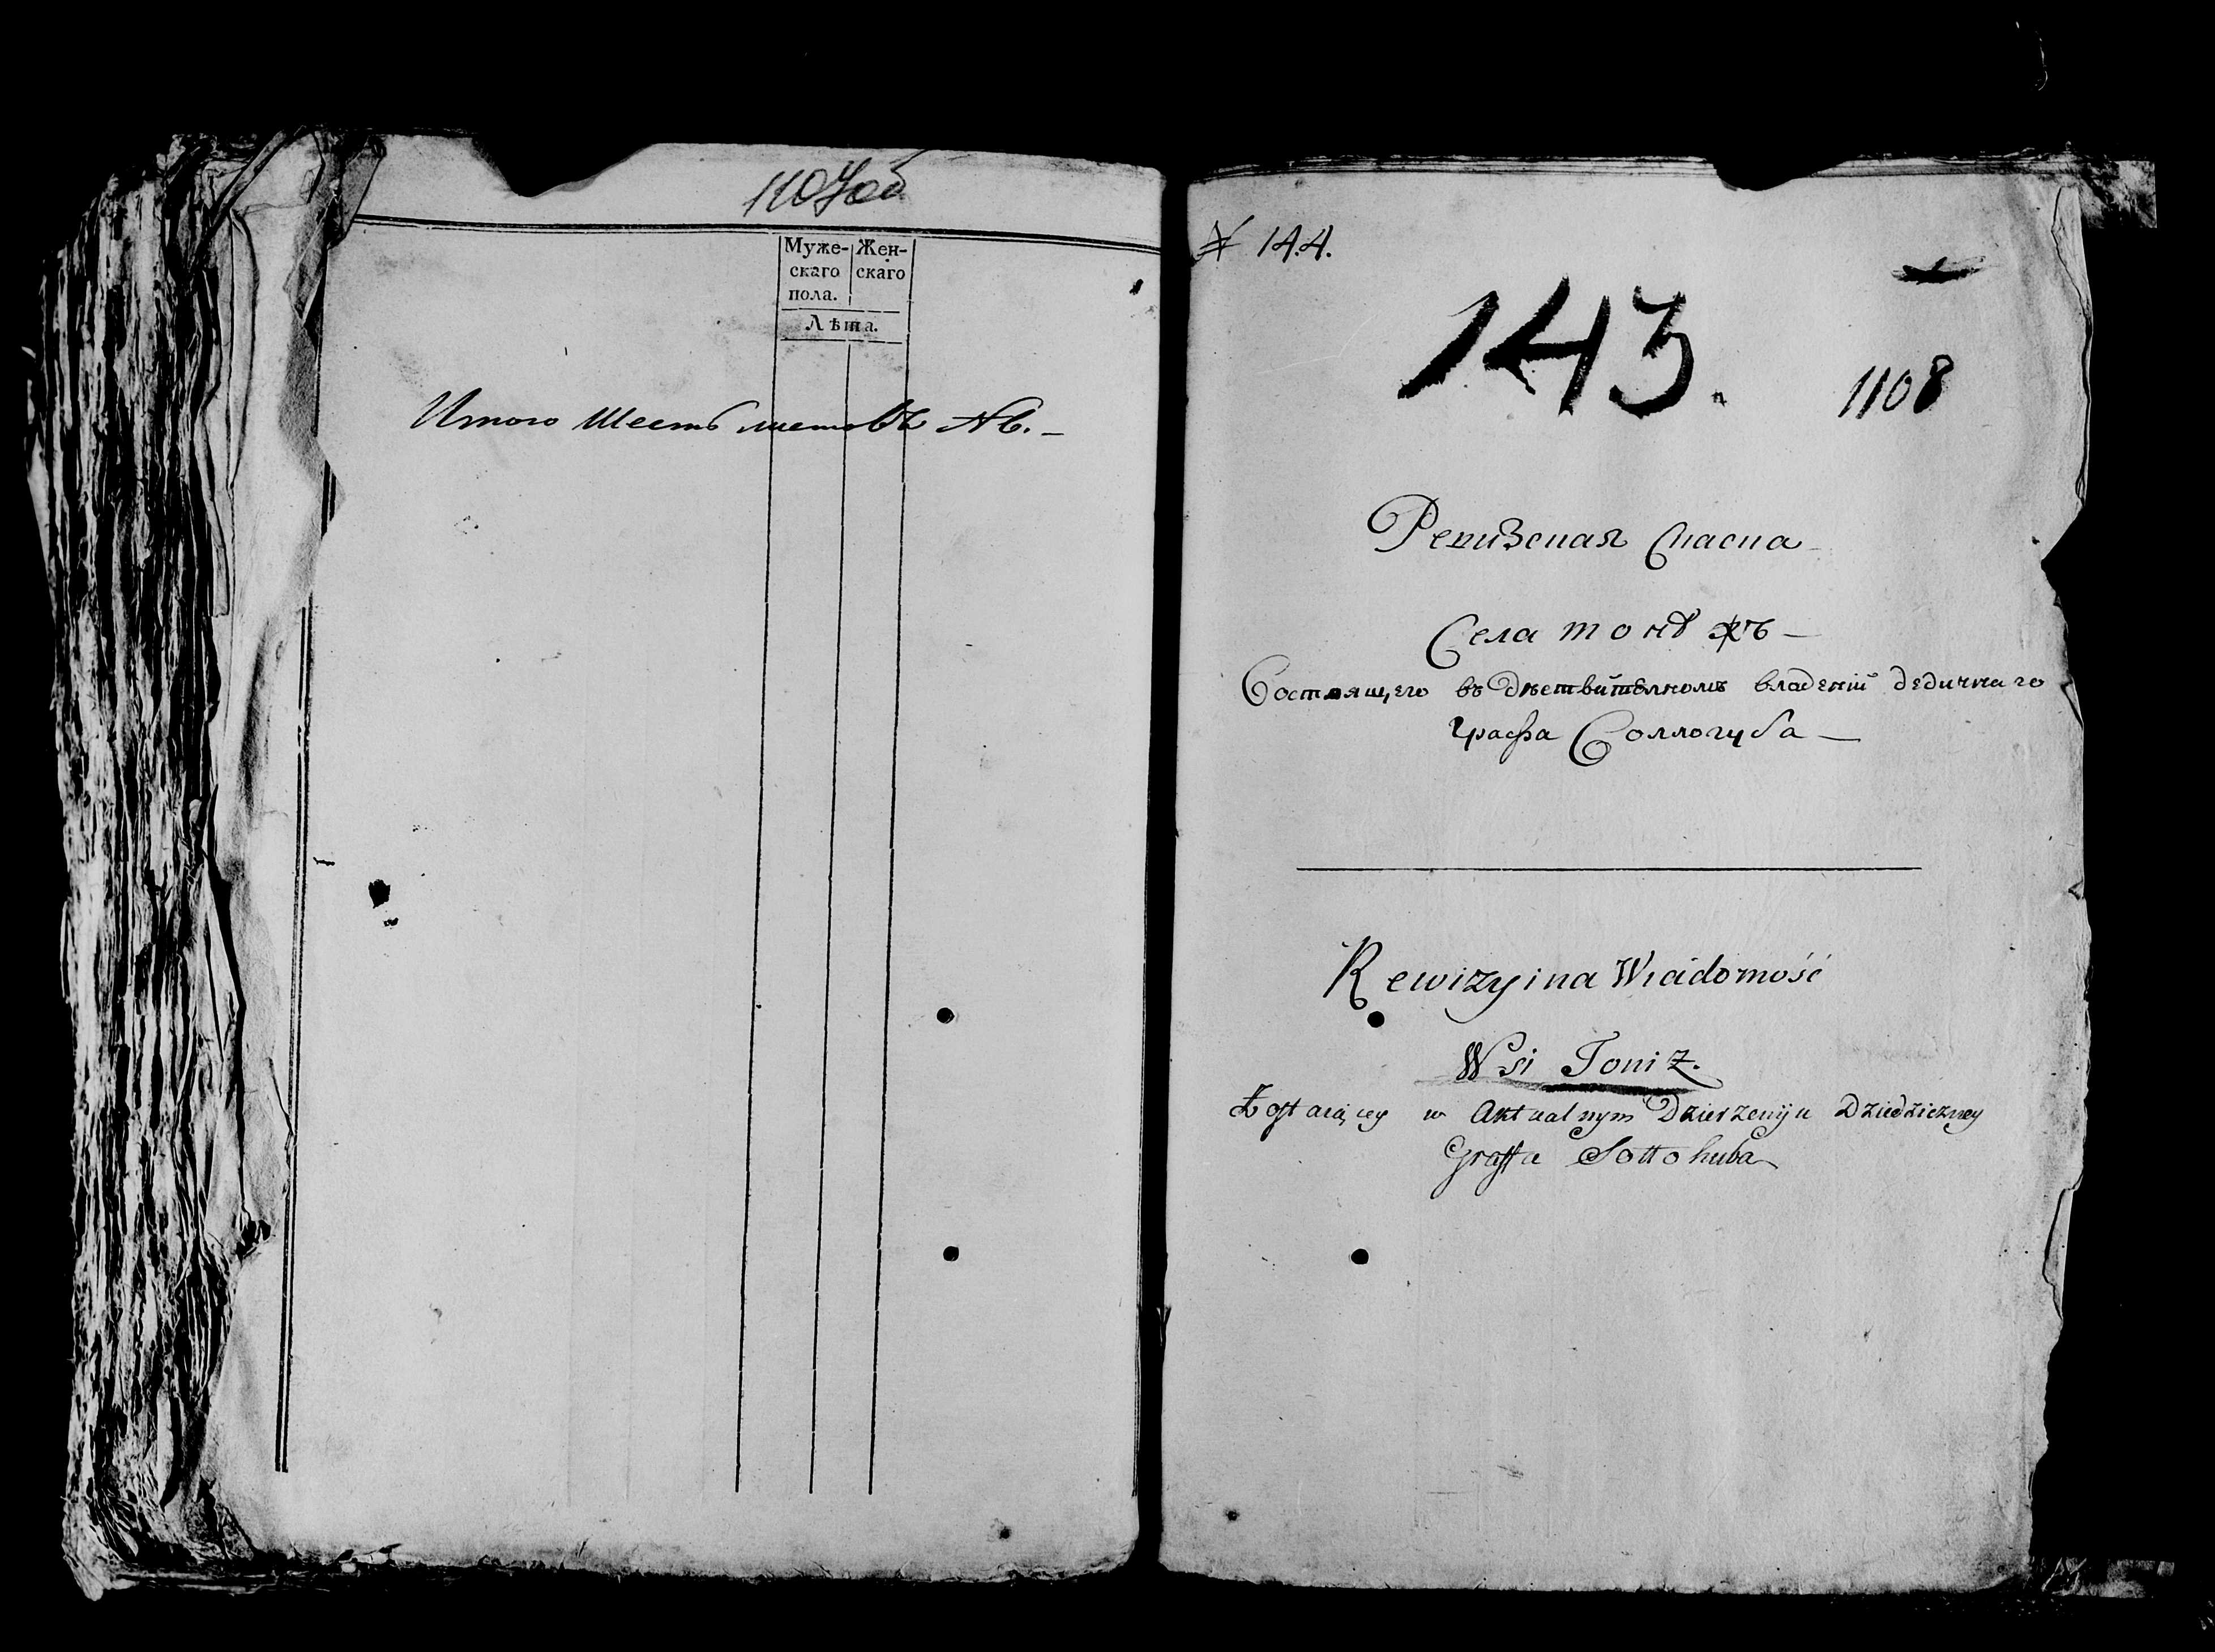 1107об
Муже-
скаго
пола.
Жен-
скаго
Лѣта.
Итого шесть листовъ
№ 144.
143.
1108
Ревизская Скаска
Села Тонѣжъ
Состоящего въ дѣствителномъ владении дедичнаго
графа Соллогуба
Rewizyina Wiadomość
Wsi Toniż.
Zostaiącey w Aktualnym Dzierzeniju Dziedziczney
Graffa Sołłohuba